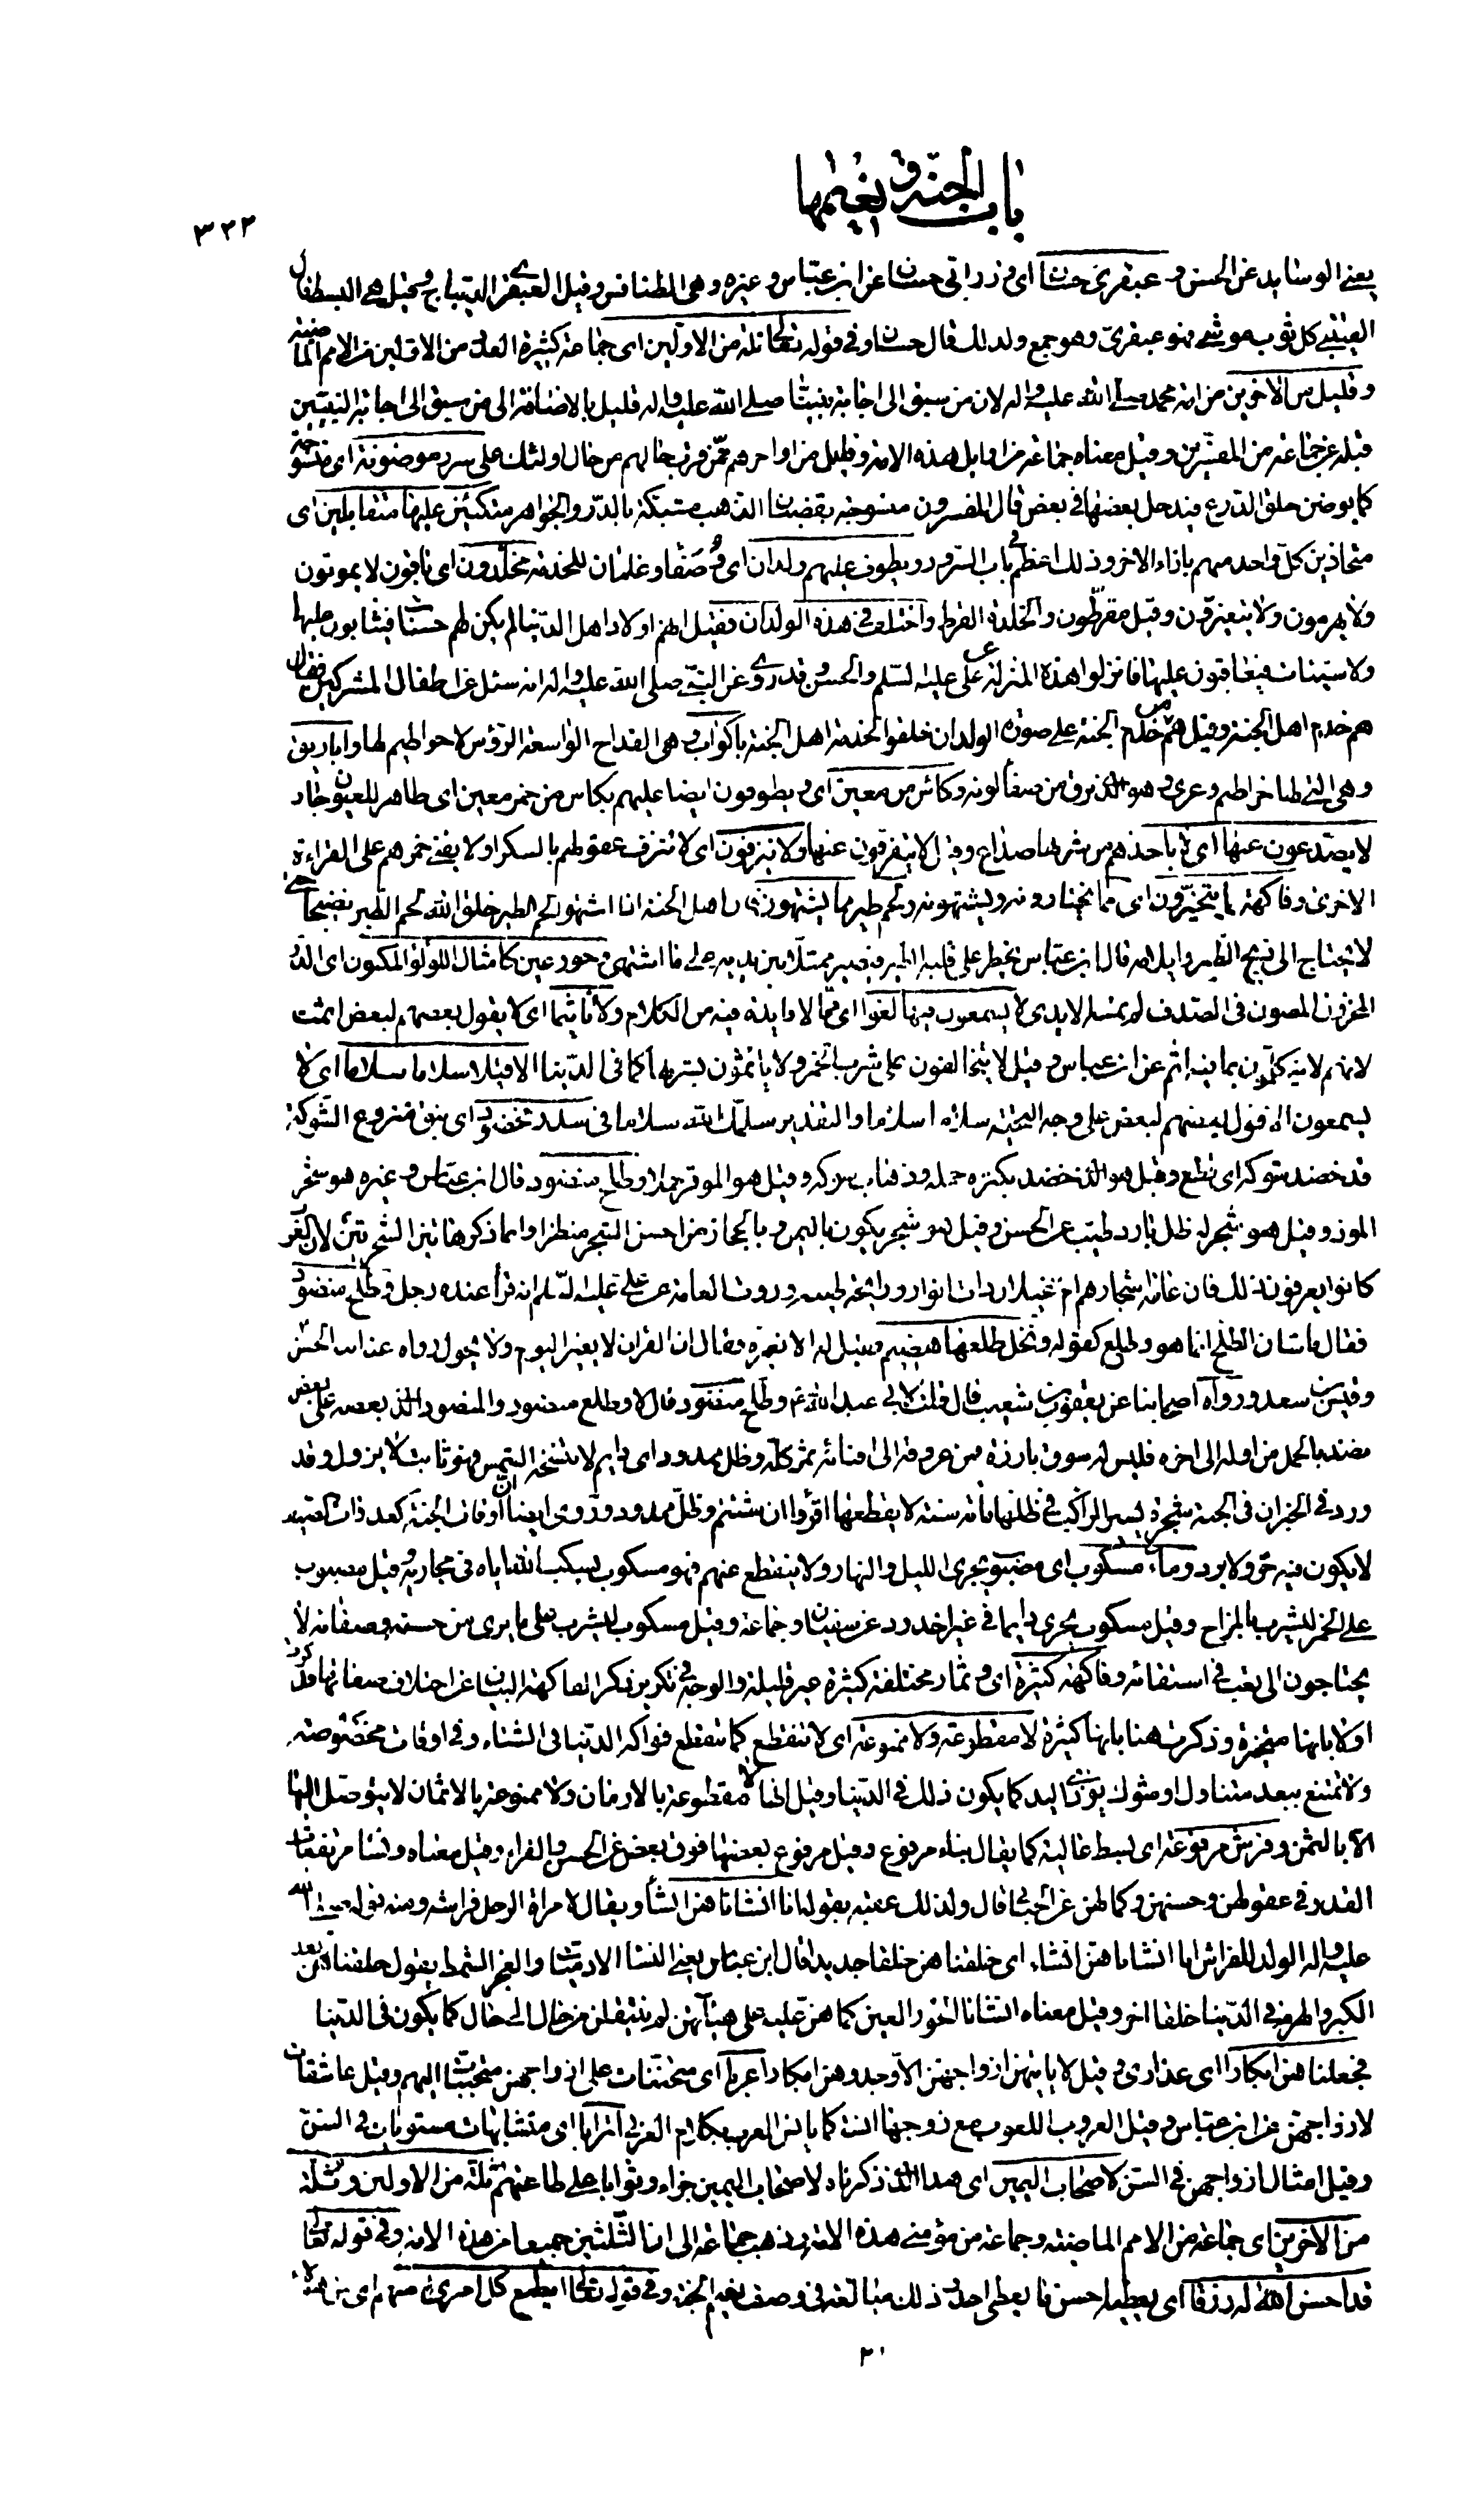 باب الجنة و نعيمها
٣٣٢
يعنى الوسايد عن الحسن و عبقرى حسان اى و زرابى حسان عن ابن عباس و غيره و هى الطنافس و قيل العبقرى الديباج و قيل هى البسط قال
القتيبى كل ثوب موشى فهو عبقرى و هو جمع و لذلك قال حسان و فى قوله تعالى ثلة من الاولين اى جماعة كثيرة العدد من الاولين من الامم الماضية
و قليل من الاخرين من امة محمد صلى الله عليه و اله لان من سبق الى اجابة نبينا صلى الله عليه و اله قليل بالاضافة الى من سبق الى اجابة النبيين
قبله عن جماعة من المفسرين و قيل معناه جماعة من اوايل هذه الامة و قليل من اواخرهم ممن قرب حالهم من حال اولئك على سرر موضونة اى منسوجة
كما يوضن حلق الدرع فيدخل بعضها فى بعض قال المفسرون منسوجة بقضبان الذهب مشبكة بالدر و الجواهر متكئين عليها متقابلين اى
متحاذين كل واحد منهم بازاء الاخر و ذلك اعظم فى باب السرور و يطوف عليهم ولدان اى وصفاء و غلمان للخدمة مخلدون اى باقون لا يموتون
و لا يهرمون و لا يتغيرون و قيل مقرطون و الخلدة القرط و اختلف فى هذه الولدان فقيل انهم اولاد اهل الدنيا لم يكن لهم حسنات فيثابون عليها
و لا سيئات فيعاقبون عليها فانزلوا هذه المنزلة عن على عليه السلم و الحسن و قد روى عن النبى صلى الله عليه و اله انه سئل عن اطفال المشركين فقال
هم خدم اهل الجنة و قيل هم من خدم الجنة على صورة الولدان خلقوا لخدمة اهل الجنة باكواب و هى القداح الواسعة الرؤس لا خراطيم لها و اباريق
و هى التى لها خراطيم و عرى و هو الذى يبرق من صفاء لونه و كاس من معين اى و يطوفون ايضا عليهم بكاس من خمر معين اى ظاهر للعيون جار
لا يصدعون عنها اى لا ياخذهم من شربها صداع و قيل لا يتفرقون عنها و لا ينزفون اى لا تنزف عقولهم بالسكر او لا يفنى خمرهم على القراءة
الاخرى و فاكهة مما يتخيرون اى مما يختارونه و يشتهونه و لحم طير مما يشتهون فان اهل الجنة اذا اشتهوا لحم الطير خلق الله لحم الطير نضيجا حتى
لا يحتاج الى ذبح الطير و ايلامه قال ابن عباس يخطر على قلبه الطير فيصير ممثلا بين يديه على ما اشتهى و حور عين كامثال اللؤلؤ المكنون اى الدر
المخزون المصون فى الصدف لم يمسه الايدى لا يسمعون فيها لغوا اى ما لا فايدة فيه من الكلام و لا تاثيما اى لا يقول بعضهم لبعض اثمت
لانهم لا يتكلمون بما فيه اثم عن ابن عباس و قيل لا يتخالفون على شرب الخمر و لا ياثمون بشربها كما فى الدنيا الا قيلا سلاما سلاما اى لا
يسمعون الا قول بعضهم لبعض على وجه التحية سلاما سلاما و التقدير سلمك الله سلاما فى سدر مخضود اى نبق منزوع الشوكة
قد خضد شوكه اى قطع و قيل هو الذى خضد بكثرة حمله و ذهاب شوكه و قيل هو الموقر حملا و طلح منضود قال ابن عباس و غيره هو شجر
الموز و قيل هو شجر له ظل بارد طيب عن الحسن و قيل هو شجر يكون باليمن و بالحجاز من احسن الشجر منظرا و انما ذكر هاتين الشجرتين لان العرب
كانوا يعرفون ذلك فان عامة اشجارهم ام غيلان ذات انوار و رائحة طيبة و روت العامة عن على عليه السلم انه قرأ عنده رجل و طلح منضود
فقال ما شان الطلح انما هو و طلع كقوله و نخل طلعها هضيم فقيل له الا تغيره فقال ان القران لا يغير اليوم و لا يحول رواه عنه ابنه الحسن
و قيس بن سعد و رواه اصحابنا عن يعقوب بن شعيب قال قلت لابى عبد الله ع و طلح منضود قال لا و طلع منضود و المنضود الذى بعضه على بعض
نضد بالحمل من اوله الى اخره فليس له سوق بارزة فمن عروقه الى افنانه ثمر كله و ظل ممدود اى دايم لا تنسخه الشمس فهو ثابت لا يزول و قد
ورد فى الخبر ان فى الجنة شجرة يسير الراكب فى ظلها مائة سنة لا يقطعها اقرؤا ان شئتم و ظل ممدود و روى ايضا ان اوقات الجنة كغدوات الصيف
لا يكون فيه حر و لا برد و ماء مسكوب اى مصبوب يجرى الليل و النهار و لا ينقطع عنهم فهو مسكوب يسكب الله اياه فى مجاريه و قيل مصبوب
على الخمر ليشرب بالمزاج و قيل مسكوب يجرى دايما فى غير اخدود عن سفيان و جماعة و قيل مسكوب ليشرب على ما يرى من حسنه و صفائه لا
يحتاجون الى تعب فى استقائه و فاكهة كثيرة اى و ثمار مختلفة كثيرة غير قليلة و الوجه فى تكرير ذكر الفاكهة البيان عن اختلاف صفاتها فذكرت
اولا بانها متخيرة و ذكرت هنا بانها كثيرة لا مقطوعة و لا ممنوعة اى لا تنقطع كما تنقطع فواكه الدنيا فى الشتاء و فى اوقات مخصوصة
و لا تمتنع ببعد متناول او شوك يؤذى اليد كما يكون ذلك فى الدنيا و قيل انها لا مقطوعة بالازمان و لا ممنوعة بالاثمان لا يتوصل اليها
الا بالثمن و فرش مرفوعة اى بسط عالية كما يقال بناء مرفوع و قيل مرفوع بعضها فوق بعض عن الحسن و الفراء و قيل معناه و نساء مرتفعات
القدر فى عقولهن و حسنهن و كمالهن عن الجبائى قال و لذلك عقبه بقوله انا انشاناهن انشاء و يقال لامراة الرجل فراشه و منه قوله صلى الله
عليه و اله الولد للفراش انا انشاناهن انشاء اى خلقناهن خلقا جديدا قال ابن عباس يعنى النساء الادميات و العجز الشمط يقول خلقناهن بعد
الكبر و الهرم فى الدنيا خلقا اخر و قيل معناه انشانا الحور العين كما هن عليه على هيآتهن لم ينتقلن من حال الى حال كما يكون فى الدنيا
فجعلناهن ابكارا اى عذارى و قيل لا ياتيهن ازواجهن الا وجدوهن ابكارا عربا اى متحننات على ازواجهن متحببات اليهم و قيل عاشقات
لازواجهن عن ابن عباس و قيل العروب اللعوب مع زوجها انسا به كما يانس العرب بكلام العربى اترابا اى متشابهات مستويات فى السن
و قيل امثال ازواجهن فى السن لاصحاب اليمين اى هذا الذى ذكرناه لاصحاب اليمين جزاء و ثوابا على طاعتهم ثلة من الاولين و ثلة
من الاخرين اى جماعة من الامم الماضية و جماعة من مؤمنى هذه الامة و ذهب جماعة الى ان الثلتين جميعا من هذه الامة و فى قوله تعالى
قد احسن الله له رزقا اى يعطيه احسن ما يعطى احدا و ذلك مبالغة فى وصف نعيم الجنة و فى قوله تعالى ايطمع كل امرئ منهم اى من هؤلاء